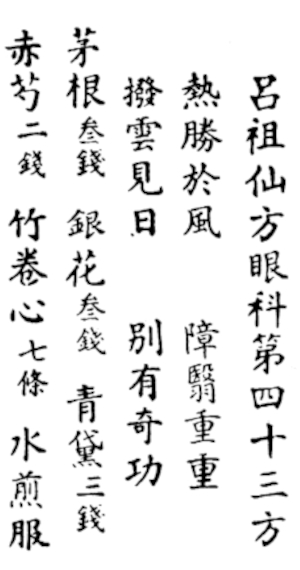 呂祖仙方眼科第四十三方
熱勝於風 障翳重重
撥雲見日 別有奇功
茅根叁錢 銀花叁錢 青黛三錢
赤芍二錢 竹卷心七條 水煎服